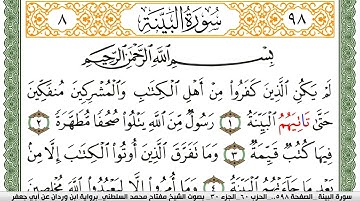 ٩٨ سُورَةُ البَيِّنَةِ ٨
بِسْمِ اللَّهِ الرَّحْمَٰنِ الرَّحِيمِ
لَمْ يَكُنِ الَّذِينَ كَفَرُوا مِنْ أَهْلِ الْكِتَابِ وَالْمُشْرِكِينَ مُنفَكِّينَ
حَتَّىٰ تَاتِيَهُمُ الْبَيِّنَةُ ١ رَسُولٌ مِّنَ اللَّهِ يَتْلُوا صُحُفًا مُّطَهَّرَةً ٢
فِيهَا كُتُبٌ قَيِّمَةٌ ٣ وَمَا تَفَرَّقَ الَّذِينَ أُوتُوا الْكِتَابَ إِلَّا مِنۢ
بَعْدِ مَا جَآءَتْهُمُ الْبَيِّنَةُ ٤ وَمَآ أُمِرُوا إِلَّا لِيَعْبُدُوا اللَّهَ مُخْلِصِينَ
سورة البينة . الصفحة ٥٩٨... الحزب ٦٠ . الجزء ٣٠ . بصوت الشيخ مفتاح محمد السلطني . برواية ابن وردان عن أبي جعفر